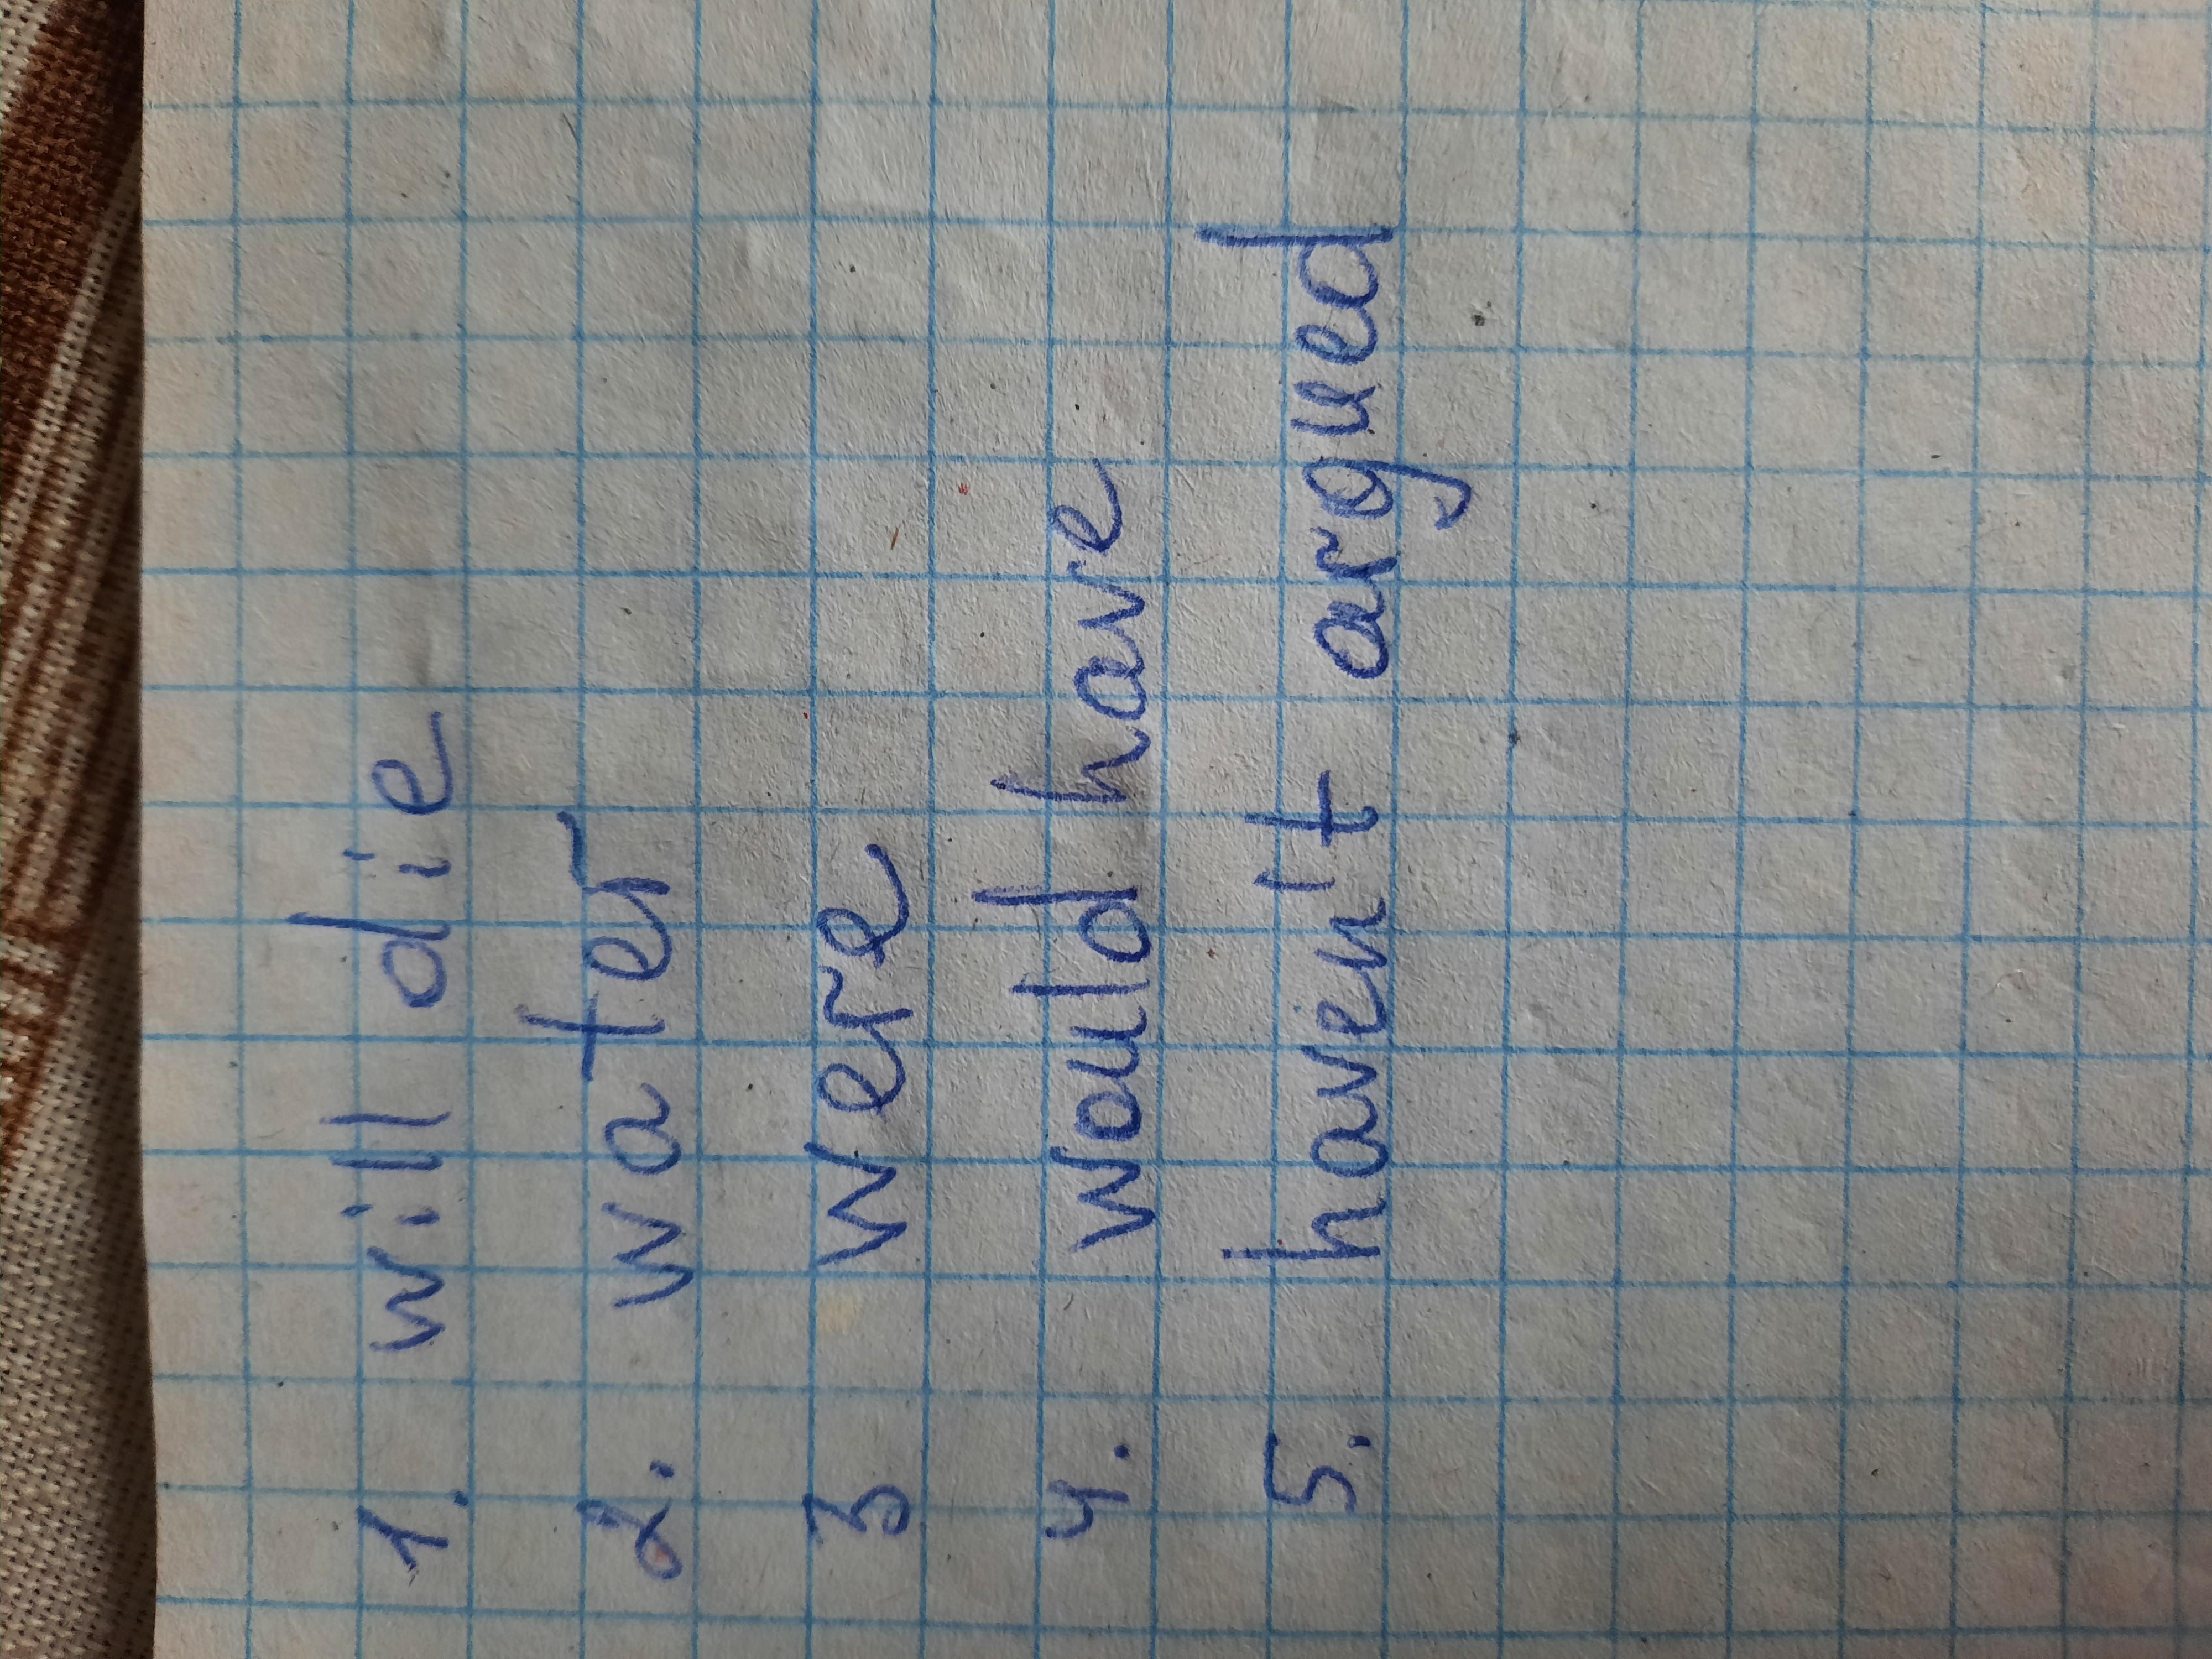 1. will die
2. water
3 were
4. would have
5. haven't argued